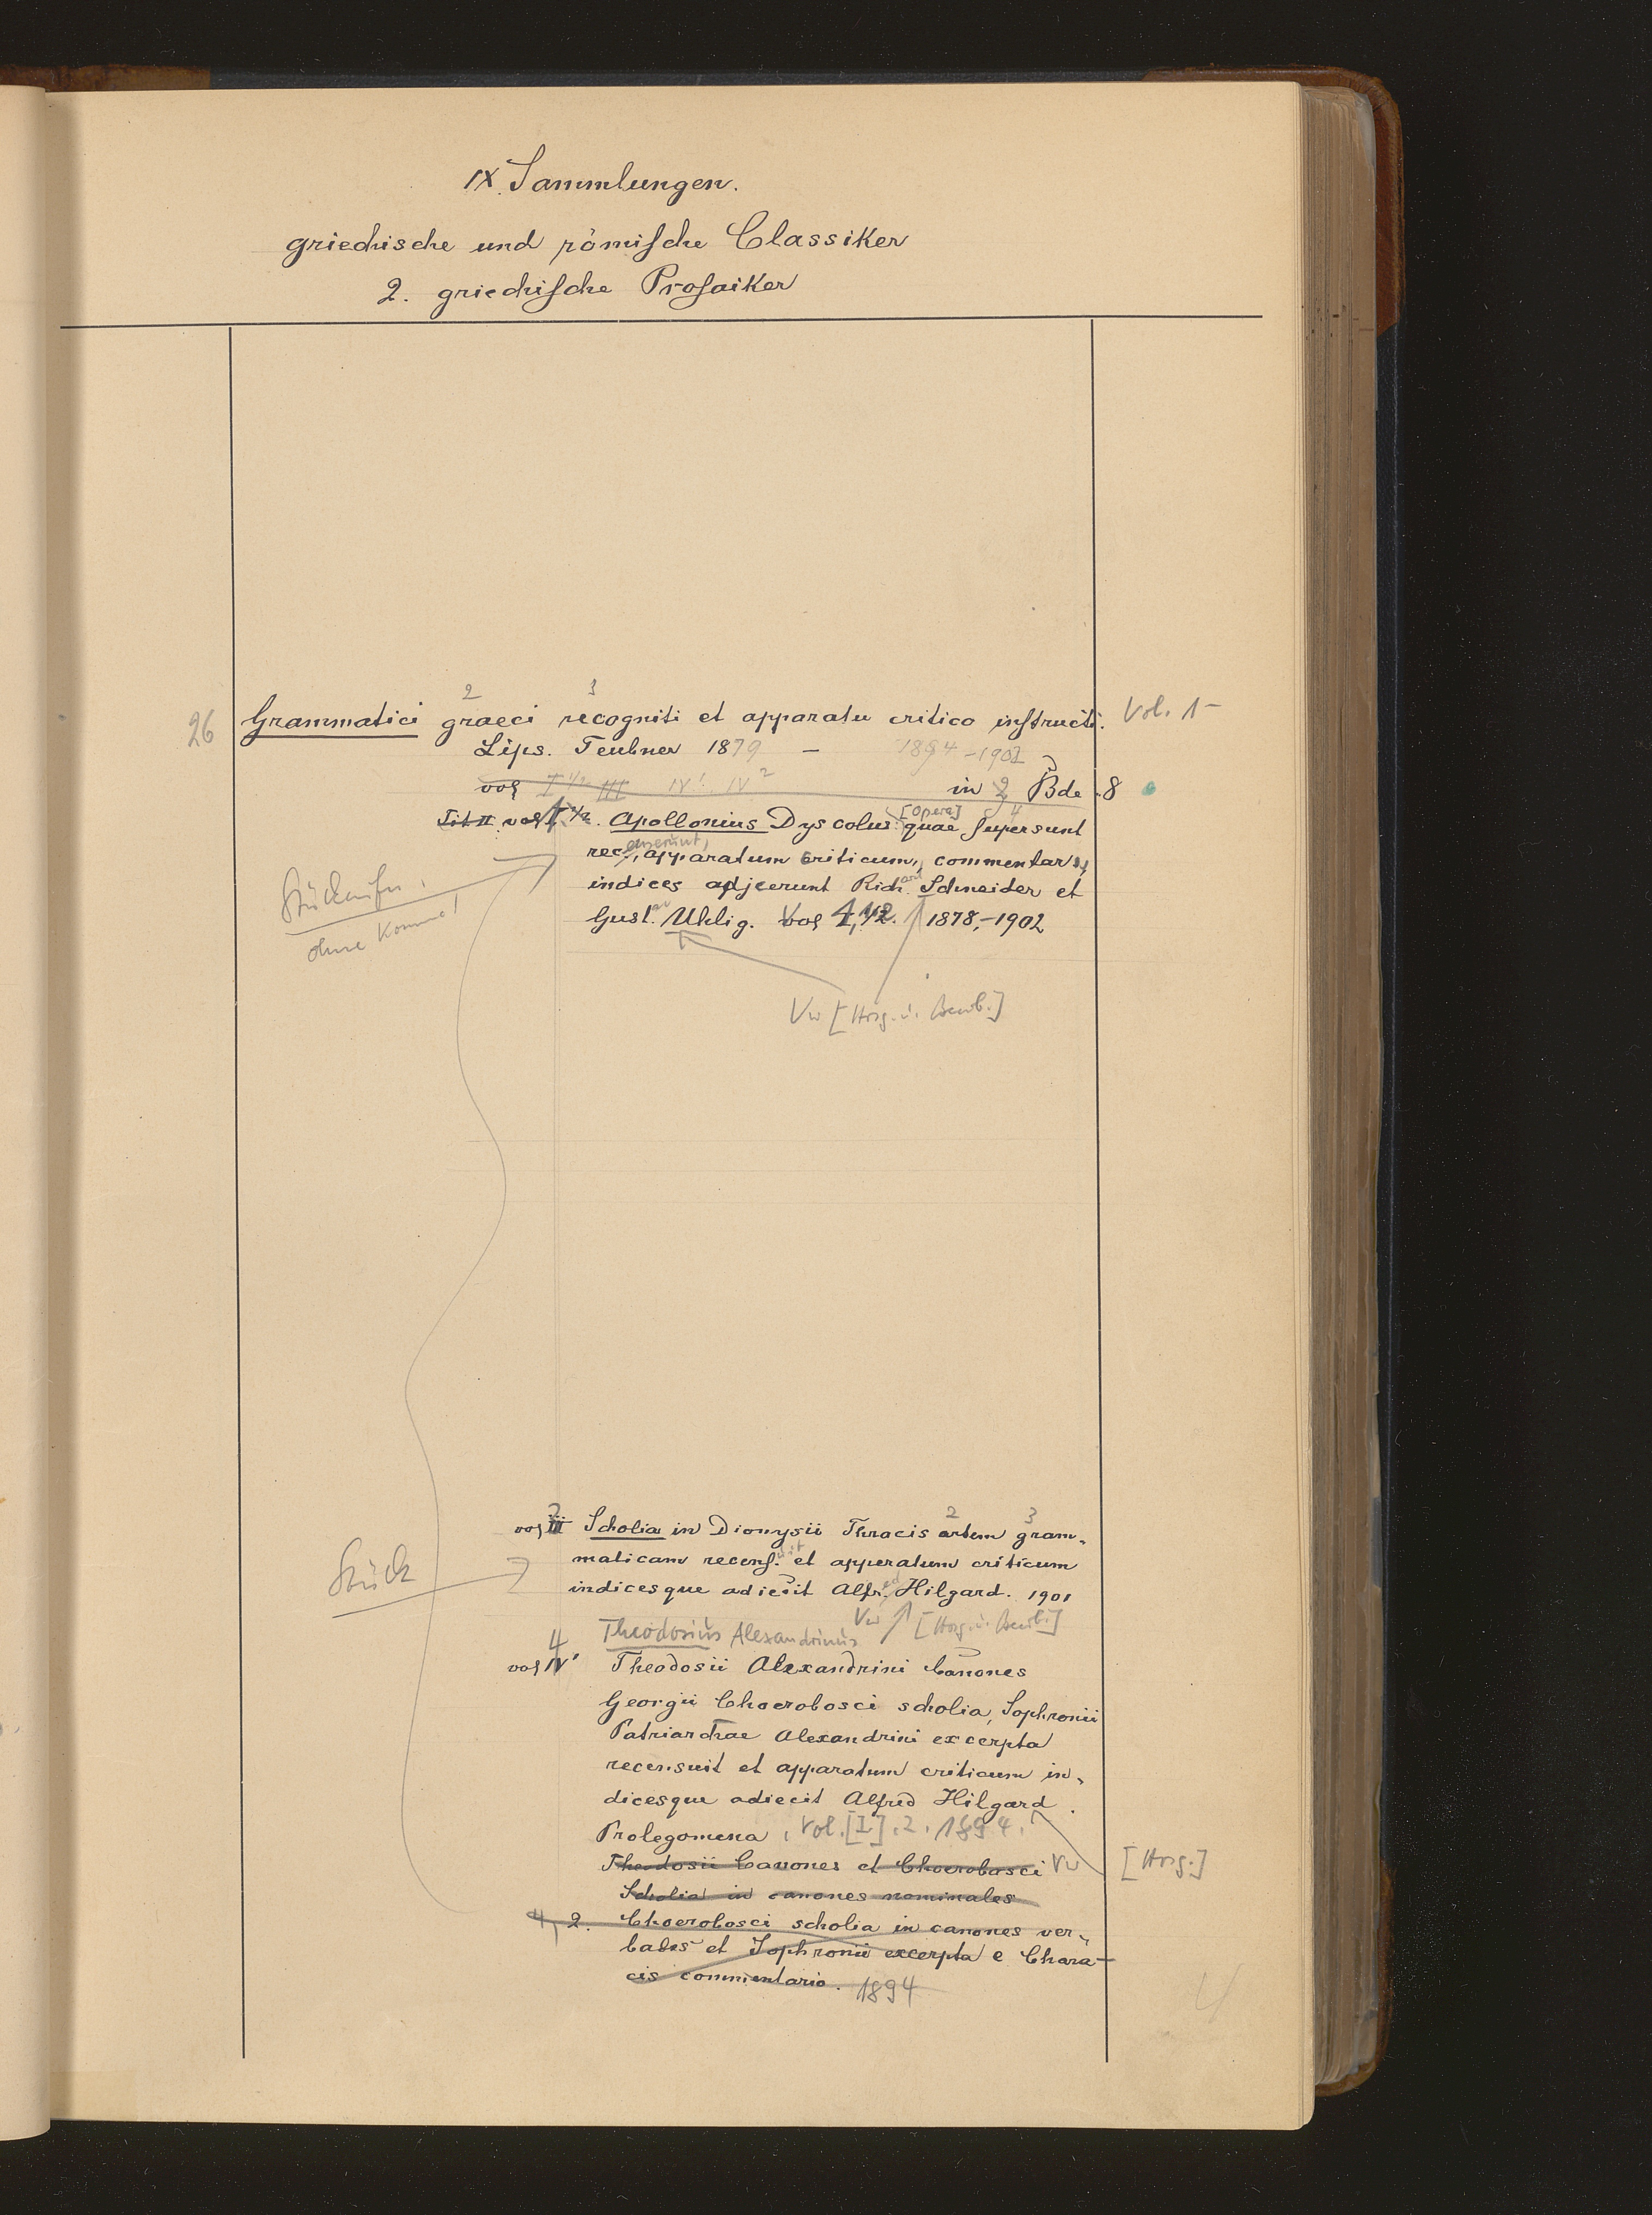 IX. Sammlungen.
griechische und römische Classiker
2. griechische Prosaiker
2 3
26 Grammatici graeci recogniti et apparatu critico instructi. Vol. 1-
Lips. Teubner 1879 - 1894-1902
vol I 1/2 III IV¹. IV² in 2 Bde. 8
4
Tit II vol I 1/2. Apollonius Dyscolus [Opera] quae supersunt
rec.ensuerunt, apparatum criticum, commentar.,
indices adjecerunt Richard Schneider et
Gustav Uhlig. Vol 1, 1/2. 1878,-1902
ohne Komma!
Vw [Hrsg. u. Bearb.]
3 2 3
vol III Scholia in Dionysii Thracis artem gram-
maticam recensuit et apparatum criticum
indicesque adiecit Alfred Hilgard. 1901
Stück
Vw [Hrsg. u. Bearb.]
Theodosius Alexandrinus
4
vol IV¹ Theodosii Alexandrini Canones
Georgii Choerobosci scholia, Sophronii
Patriarchae Alexandrini excerpta
recensuit et apparatum criticum in-
dicesque adiecit Alfred Hilgard.
Prolegomena, Vol. [I]. 2. 1894.
Theodosii Canones et Choerobosci Vw [Hrsg.]
Scholia in canones nominales
4, 2. Choerobosci scholia in canones ver-
bales et Sophronii excerpta e Chara-
cis commentario. 1894
4